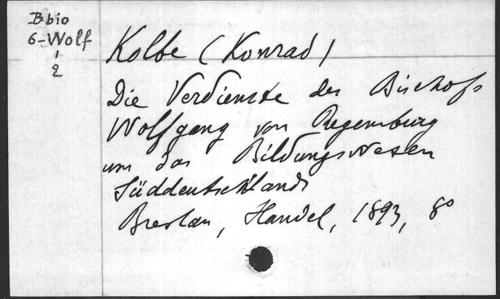 Bbio
6-Wolf
1
2
Kolbe (Konrad)
Die Verdienste des Bischofs
Wolfgang von Regensburg
um das Bildungswesen
Süddeutschlands
Breslau, Handel, 1893, 8°